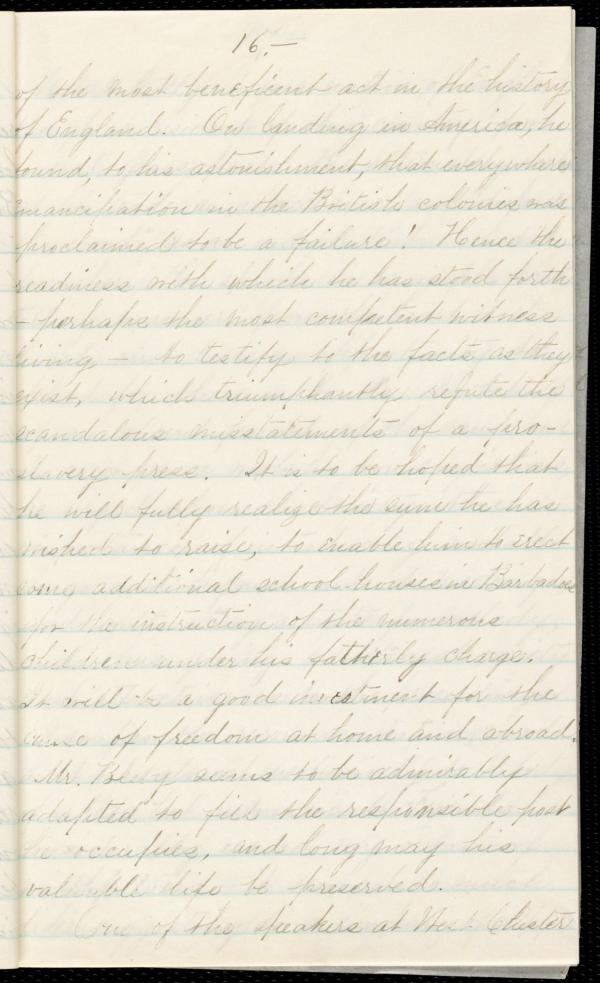 16.—
of the most beneficent act in the history
of England. On landing in America, he
found, to his astonishment, that everywhere
emancipation in the British colonies was
proclaimed to be a failure! Hence the
readiness with which he has stood forth
— perhaps the most competent witness
living — to testify to the facts as they
exist, which triumphantly refute the
scandalous misstatements of a pro-
slavery press. It is to be hoped that
he will fully realize the sum he has
wished to raise, to enable him to erect
some additional school-houses in Barbadoes
for the instruction of the numerous
children under his fatherly charge.
It will be a good investment for the
cause of freedom at home and abroad.
Mr. seems to be admirably
adapted to fill the responsible post
he occupies, and long may his
valuable life be preserved.
One of the speakers at West Chester